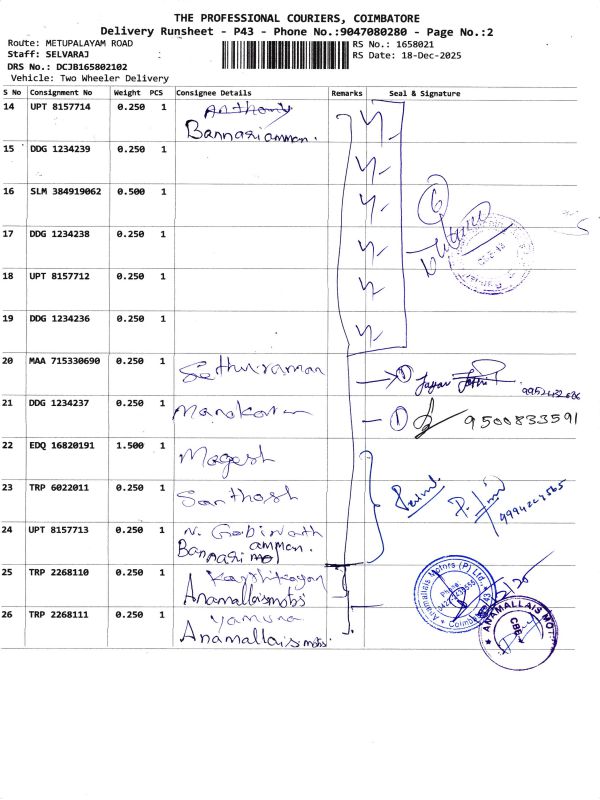 THE PROFESSIONAL COURIERS, COIMBATORE
Delivery Runsheet - P43 - Phone No.:9047080280 - Page No.:2
Route: METUPALAYAM ROAD RS No.: 1658021
Staff: SELVARAJ RS Date: 18-Dec-2025
DRS No.: DCJB165802102
Vehicle: Two Wheeler Delivery
S No Consignment No Weight PCS Consignee Details Remarks Seal & Signature
14 UPT 8157714 0.250 1 Anthony
Bannariamman.
15 DDG 1234239 0.250 1
16 SLM 384919062 0.500 1
6
17 DDG 1234238 0.250 1
18 UPT 8157712 0.250 1
19 DDG 1234236 0.250 1
20 MAA 715330690 0.250 1 Sethuraman 1
21 DDG 1234237 0.250 1 Manokaran 1 9500833591
22 EDQ 16820191 1.500 1 Magesh
23 TRP 6022011 0.250 1 Santhosh 9994224565
24 UPT 8157713 0.250 1 N. Gobinath
Bannari amman.
25 TRP 2268110 0.250 1 Karthikayan
Anamallaismotos
Anamallais Motors (P) Ltd.,
26 TRP 2268111 0.250 1 Yamuna
Anamallais motos
ANAMALLAIS MOT
CBE